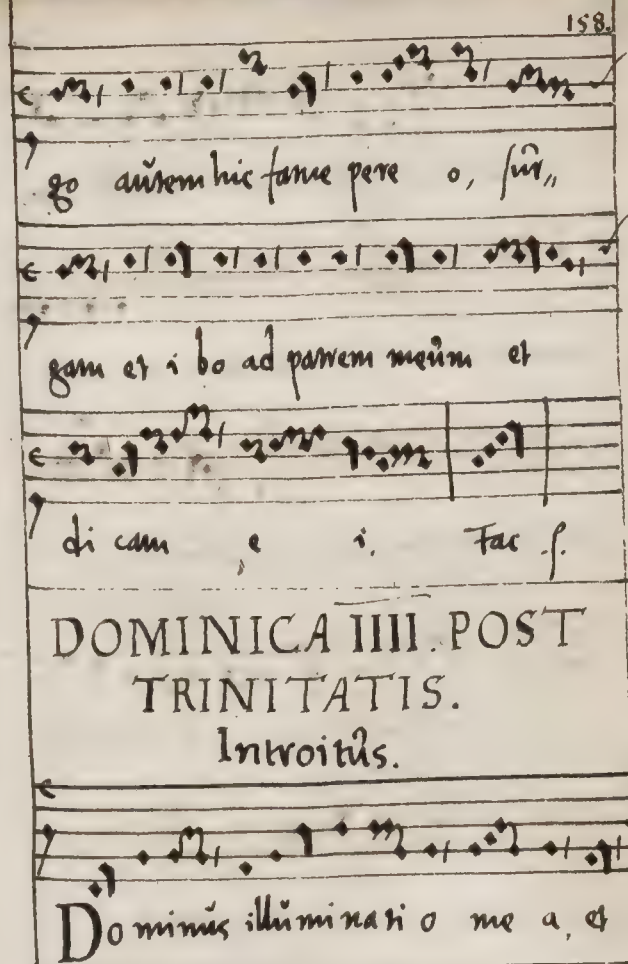 158.
go aūtem hic fame pere o, sūr,,
gam et i bo ad patrem meūm et
di cam e i. Fac .s.
DOMINICA IIII. POST
TRINITATIS.
Introitūs.
Dominūs illūminati o me a, et